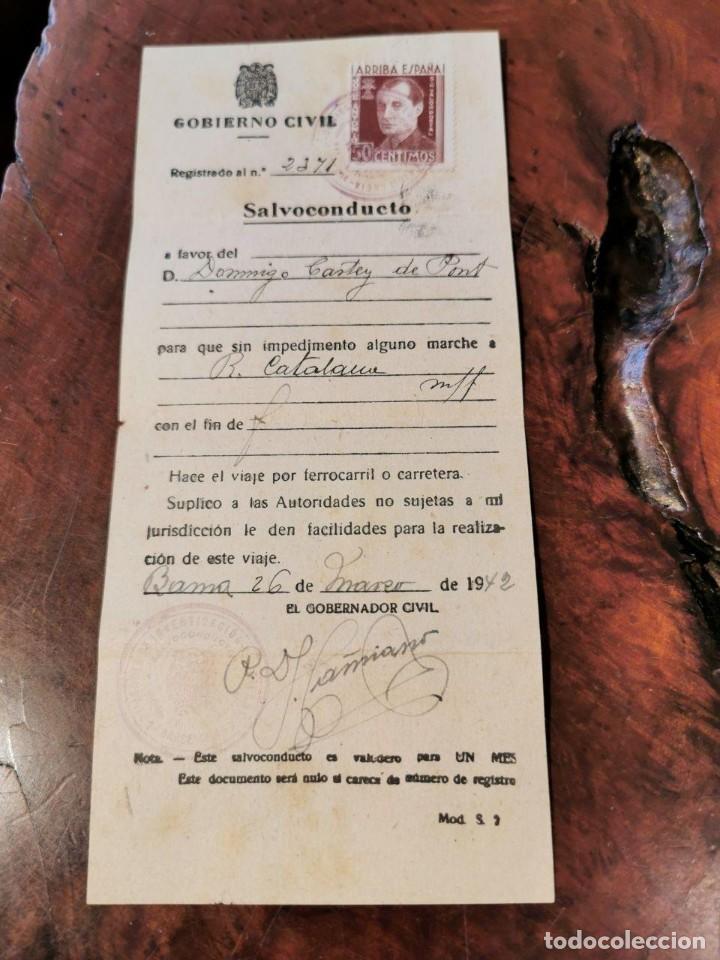 ARRIBA ESPAÑA
GOBIERNO CIVIL
50 CENTIMOS
Registrado al n.º 2371
Salvoconducto
a favor del
D. Domingo Cartey de Pont
para que sin impedimento alguno marche a
R. Catalana
con el fin de
Hace el viaje por ferrocarril o carretera.
Suplico a las Autoridades no sujetas a mi
jurisdicción le den facilidades para la realiza-
ción de este viaje.
Barna 26 de Marzo de 1942
EL GOBERNADOR CIVIL
INVESTIGACIÓN
P. D.
Nota. — Este salvoconducto es valedero para UN MES
Este documento será nulo si carece de número de registro
Mod. S. 2
todocoleccion.net